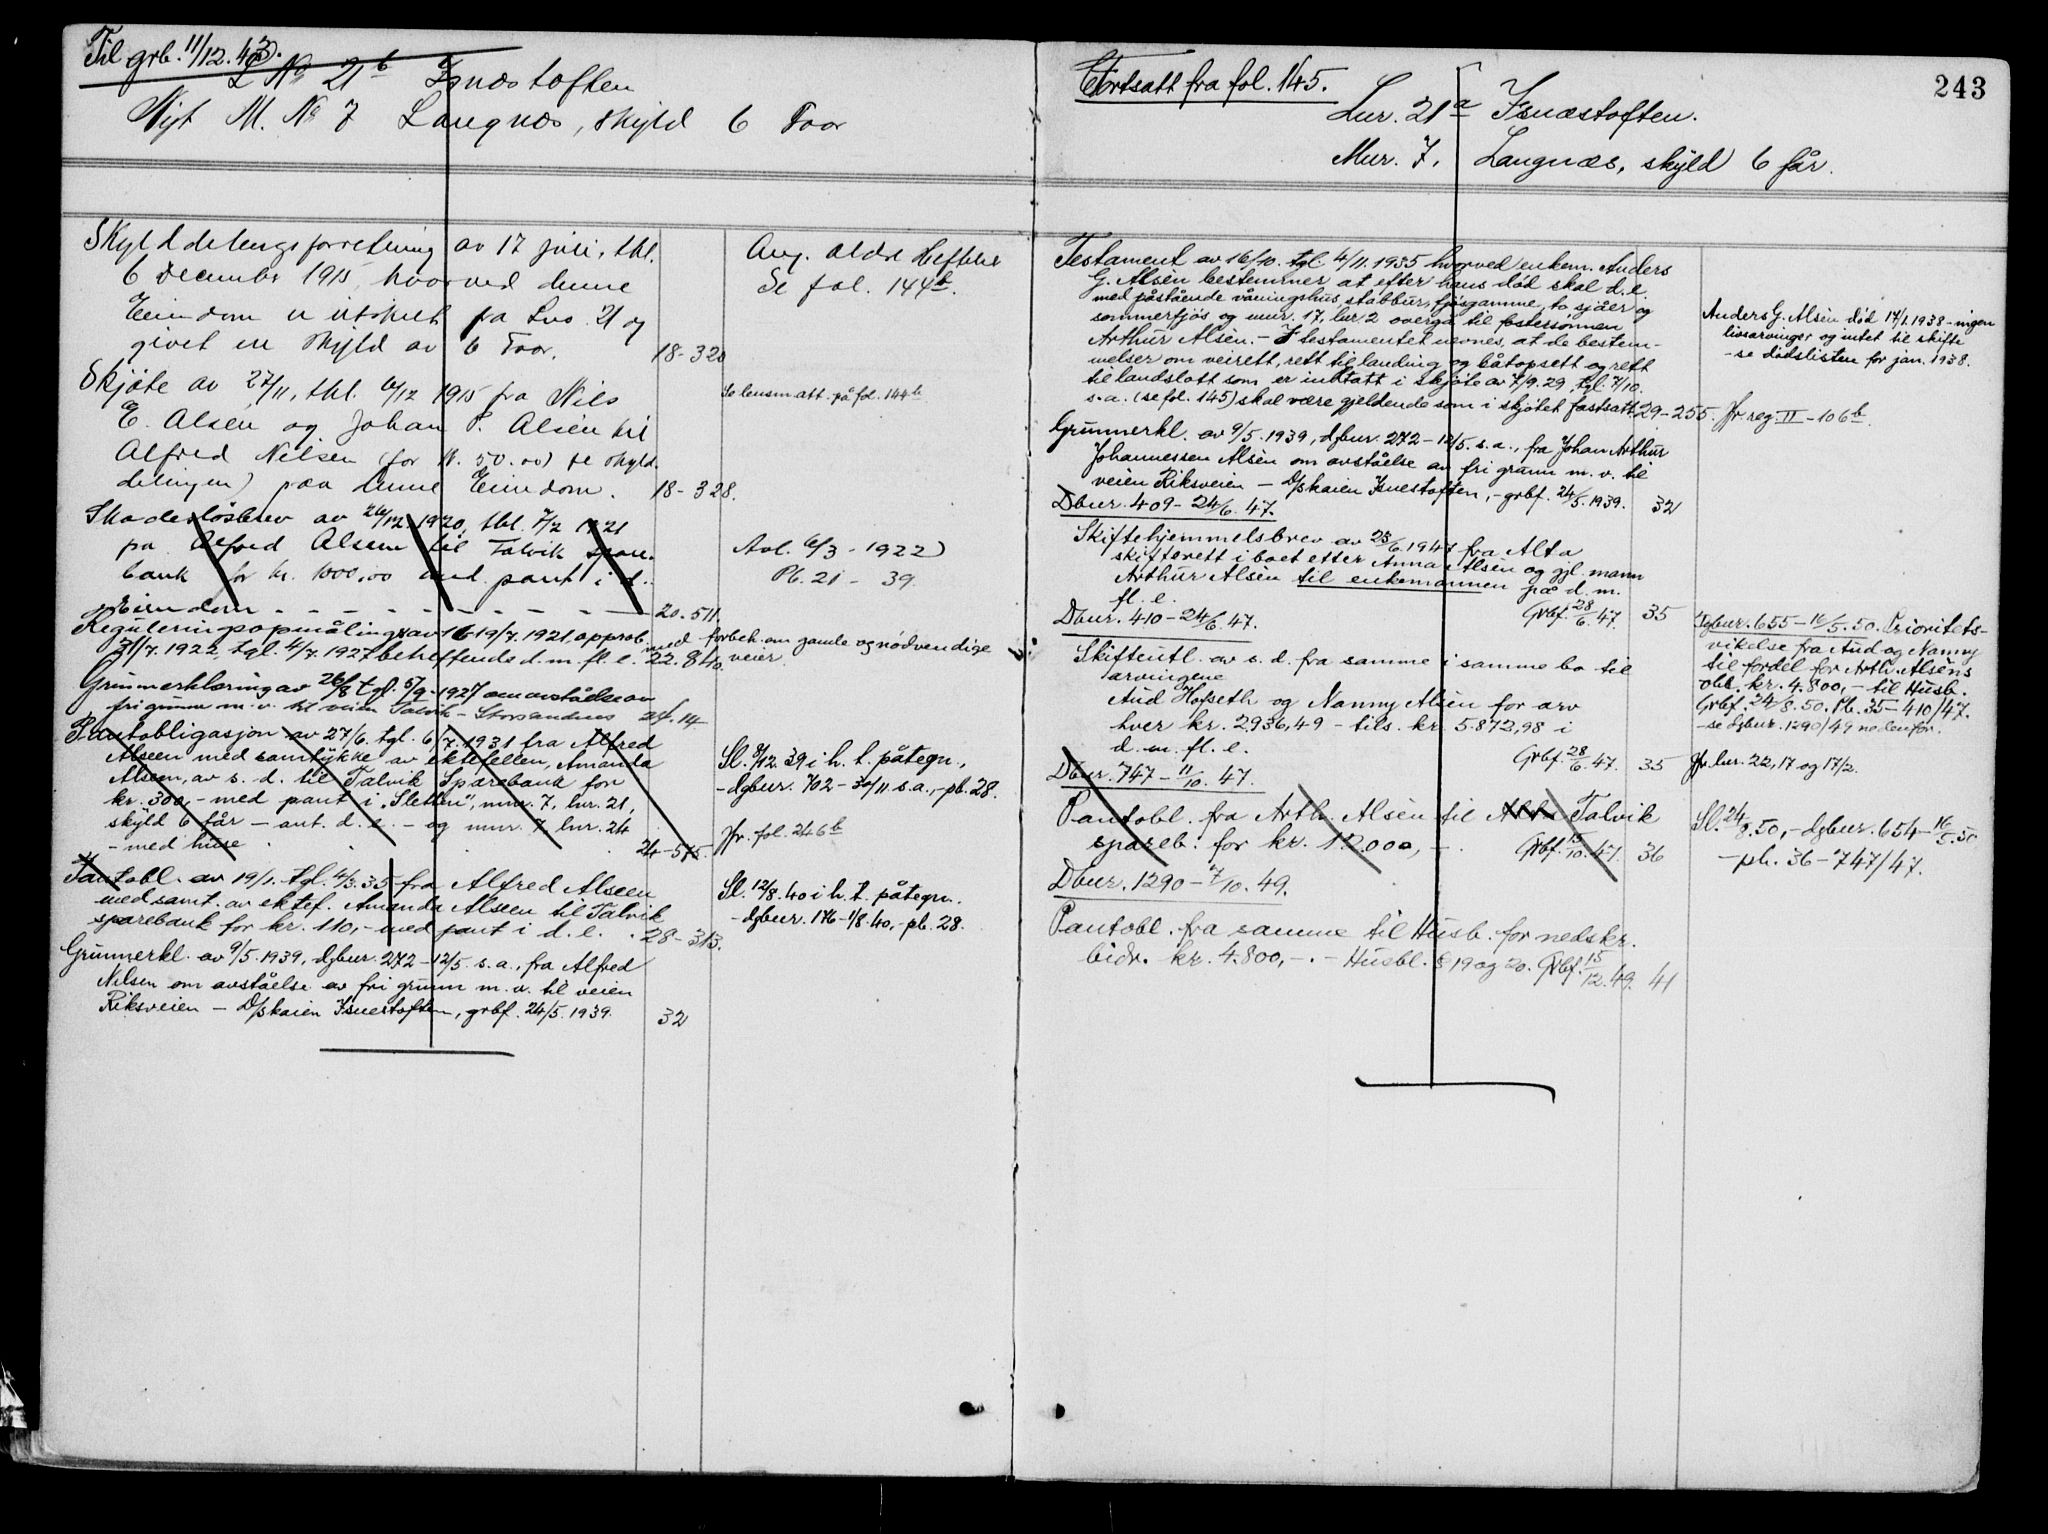 Til grb. 11/12.43.
L No 21b Isnæstoften
Nyt M. No 7 Langnæs, skyld 6 Foor
Skylddelingsforretning av 17 juli, thl.
6 December 1915, hvorved denne
Eiendom er utskilt fra Lno 21 og
givet en skyld av 6 Foor.
18-320
Ang. ældre Heftelser
Se fol. 144b.
Skjøte av 27/11, thl. 6/12 1915 fra Nils
E. Alsén og Johan P. Alsén til
Alfred Nilsen (for kr. 50.00) se skyld
delingen) paa denne Eiendom.
18-328.
Se lensm att. på fol. 144b
Skadesløsbrev av 28/12 1920, thl. 7/2 1921
fra Alfred Alseen til Talvik spare-
bank for kr. 1000,00 med pant i d.
Eiendom - - - - - - - -
20.511.
Avl. 6/3 - 1922)
Pb. 21 - 39.
Reguleringsopmåling av 16-19/7.1921, approb.
31/7.1922, tgl. 4/7.1927 betreffende d. m. fl. e.
22.840.
med forbeh. om gamle og nødvendige
veier
Grunnerklæring av 26/8 tgl. 5/9-1927 om avståelse av
fri grunn m.v. til veien Talvik - Storsandnes
24.14
Pantobligasjon av 27/6. tgl. 6/7.1931 fra Alfred
Alseen med samtykke av ektefellen, Amanda
Alseen, av s. d. til Talvik Sparebank for
kr. 300,- med pant i "Sletten", mnr. 7, lnr. 21,
skyld 6 får - ant. d. e. - og mnr. 7, lnr. 24
- med huse
24-575.
Sl. 8/12 39 i h. t. påtegn.,
-dgbnr. 702 - 30/11 s.a., -pb. 28.
Jfr. fol. 246b
Pantobl. av 19/1. tgl. 4/3.35 fra Alfred Alseen
med samt. av ektef. Amanda Alseen til Talvik
sparebank for kr. 110,- med pant i d. e.
28-313.
Sl. 12/8.40 i h. t. påtegn.
-dgbnr. 176-1/8.40,-pb. 28.
Grunnerkl. av 9/5.1939, dgbnr. 272-12/5. s. a., fra Alfred
Nilsen om avståelse av fri grunn m. v. til veien
Riksveien - D/skaien Isnestoften, grbf. 24/5.1939.
32
243
Fortsatt fra fol. 145.
Lnr. 21a Isnæstoften.
Mnr. 7, Langnæs, skyld 6 får.
Testament av 16/10. tgl. 4/11.1935 hvorved enkem. Anders
G. Alsén bestemmer at efter hans død skal d. e.
med påstående våningshus, stabbur, fjøsgamme, to sjåer og
sommerfjös og mnr. 17, lnr 2 overgå til fostersønnen
Arthur Alsén. - I testamentet nevnes, at de bestem-
melser om veirett, rett til landing og båtopsett og rett
til landslott som er inntatt i skjøte av 7/9.29, tgl. 7/10.
s.a. (se fol. 145) skal være gjeldende som i skjøtet fastsatt.
29-255.
Anders G. Alsén død 14/1.1938 - ingen
livsarvinger og intet til skifte
- se dødslisten for jan. 1938.
Jfr reg. II - 106b.
Grunnerkl. av 9/5.1939, dgbnr. 272-12/5. s. a., fra Johan Arthur
Johannessen Alsén om avståelse av fri grunn m. v. til
veien Riksveien - D/skaien Isnestoften, -grbf. 24/5.1939.
32
Dbnr. 409-24/6.47.
Skiftehjemmelsbrev av 23/6.1947 fra Alta
skifterett i boet etter Anna Alsén og gjl. mann
Arthur Alsén til enkemannen på d. m.
fl. e. Grbf. 28/6.47.
35
Dbnr. 410-24/6.47.
Skifteutl. av s. d. fra samme i samme bo til
arvingene
Aud Hofseth og Nanny Alsén for arv
hver kr. 2936,49 - tils. kr. 5.872,98 i
d. m. fl. e. Grbf. 28/6.47.
35
Dgbnr. 655-16/5.50. Prioritets-
vikelse fra Aud og Nanny
til fordel for Arth. Alséns
obl. kr. 4.800,- til Husb.
Grbf. 24/8.50. Pb. 35-410/47.
- se dgbnr. 1290/49 nedenfor.
Jfr. lnr. 22, 17 og 17/2.
Dbnr. 747-11/10.47.
Pantobl. fra Arth. Alsén til Talvik
spareb. for kr. 12.000,-. Grbf. 15/10.47.
36
Sl. 24/8.50,-dgbnr. 654-16/5.50
- pb. 36-747/47.
Dbnr. 1290-7/10.49.
Pantobl. fra samme til Husb. for nedskr.
bidr. kr. 4.800,-. - Husbl. § 19 og 20. Grbf. 15/12.49.
41